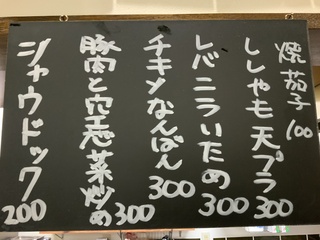 焼茄子 100
ししゃも天プラ 300
レバニラいため 300
チキンなんばん 300
豚肉と空芯菜炒め 300
ジャウドック 200